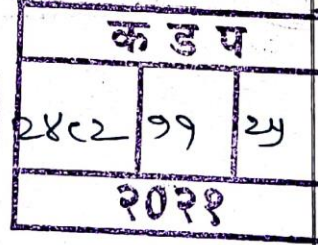 क ड प
२४८२ ११ २५
२०२१